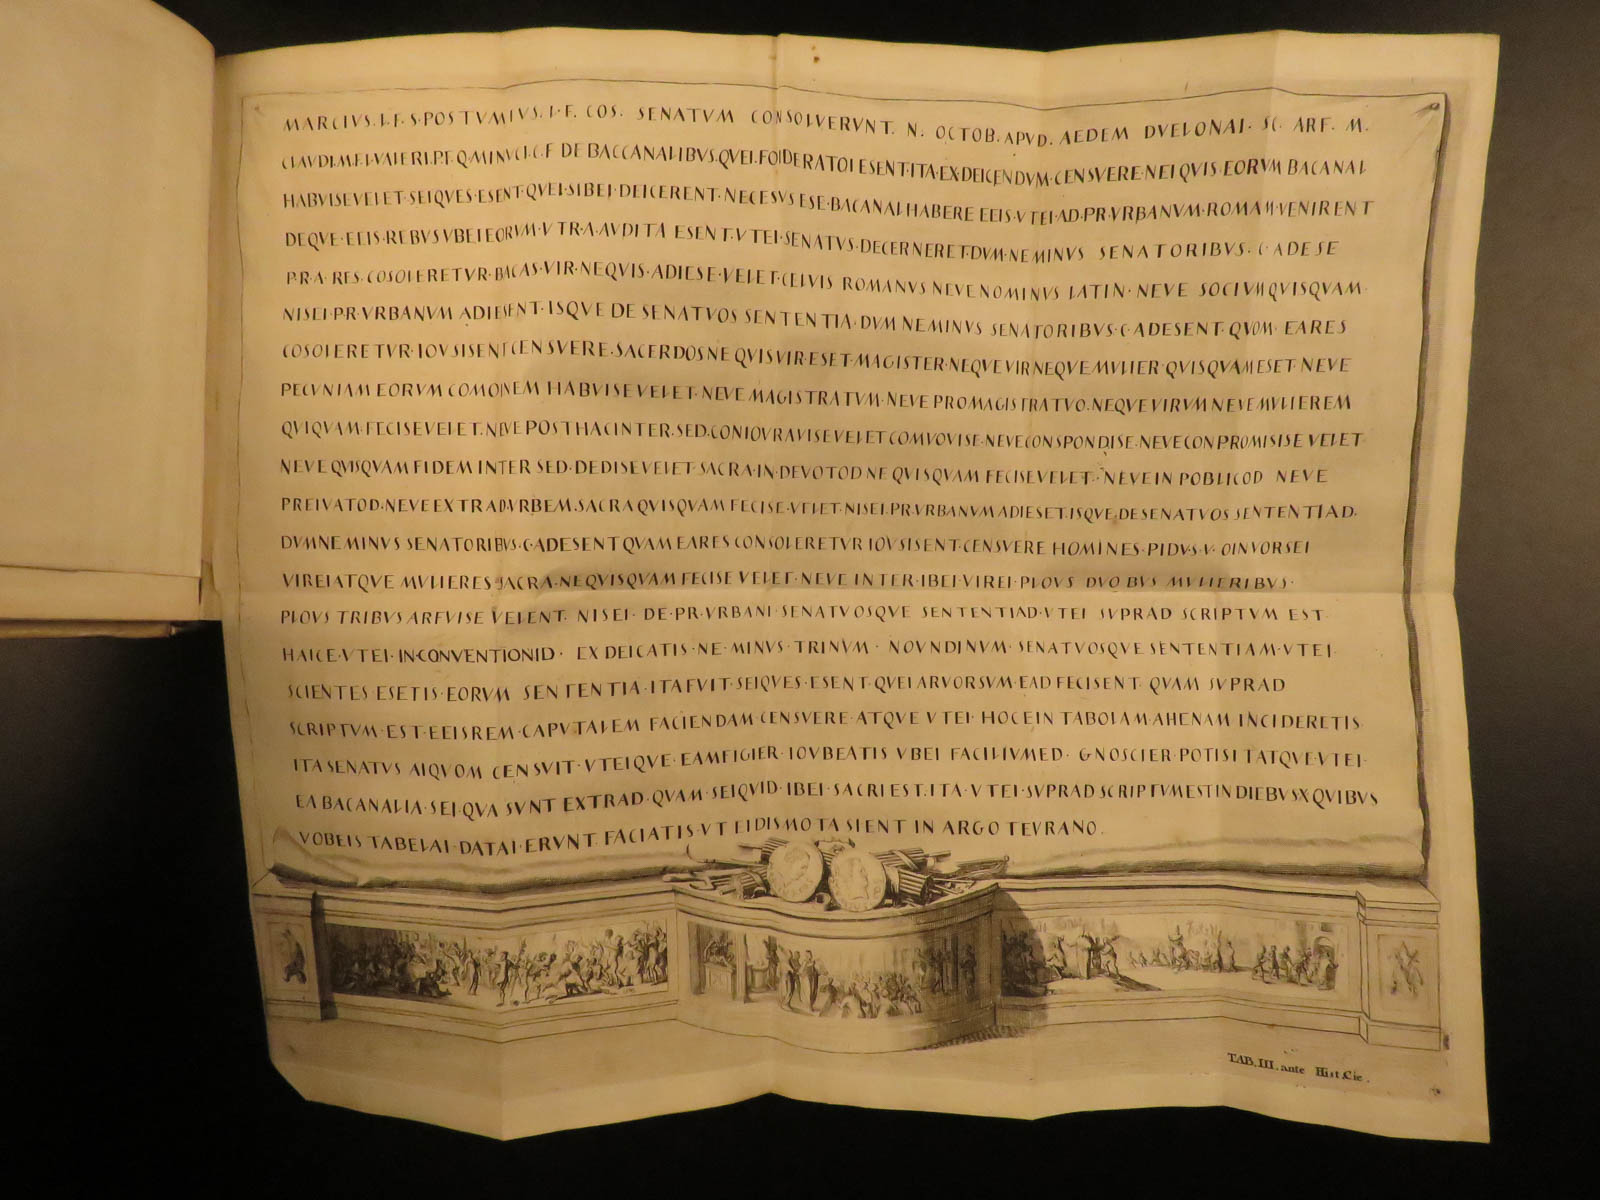 MARCIVS. L. F. S. POSTVMIVS. L. F. COS. SENATVM CONSOLVERVNT. N. OCTOB. APVD. AEDEM DVELONAI. SC. ARF. M.
CLAVDI. M. F. L. VALERI. P.F. Q. MINVCI. C. F DE BACCANALIBVS. QVEI. FOIDERATOI ESENT. ITA. EX. DEICENDVM. CENSVERE. NEIQVIS. EORVM BACANAL
HABVISE VELET. SEIQVES. ESENT. QVEI. SIBEI. DEICERENT. NECESVS ESE. BACANAL. HABERE EEIS. VTEI. AD. PR. VRBANVM. ROMAM. VENIRENT
DEQVE. EEIS. REBVS VBEI EORVM. VTR. A. AVDITA ESENT. VTEI. SENATVS. DECERNERET. DVM. NE MINVS SENATORIBVS. C. ADESE
P. R. A. RES. COSOLERETVR. BACAS. VIR. NEQVIS. ADIESE. VELET. CEIVIS ROMANVS NEVE NOMINVS LATIN. NEVE SOCIVM QVISQVAM.
NISEI. PR. VRBANVM ADIESENT. ISQVE DE SENATVOS SENTENTIA. DVM NE MINVS SENATORIBVS. C. ADESENT. QVOM. EA RES
COSOLERETVR. IOVSISENT CENSVERE. SACERDOS NE QVIS VIR. ESET. MAGISTER. NEQVE VIR NEQVE MVLIER QVISQVAM ESET. NEVE
PECVNIAM EORVM COMOINEM HABVISE VELET. NEVE MAGISTRATVM. NEVE PROMAGISTRATVO. NEQVE VIRVM NEVE MVLIEREM
QVIQVAM. FECISE VELET. NEVE POST HAC INTER. SED. CONIOVRAVISE VELET COMVOVISE. NEVE CONSPONDISE. NEVE CONPROMISISE VELET.
NEVE QVISQVAM FIDEM INTER SED. DEDISE VELET. SACRA. IN. DEVOTOD NE QVISQVAM FECISE VELET. NEVE IN POBLICOD NEVE
PREIVATOD. NEVE EXTRAD. VRBEM. SACRA QVISQVAM FECISE. VELET. NISEI. PR. VRBANVM ADIESET. ISQVE. DE SENATVOS SENTENTIAD.
DVM NE MINVS SENATORIBVS. C. ADESENT QVAM EA RES CONSOLERETVR IOVSISENT. CENSVERE HOMINES. PL DVS. V. OINVORSEI
VIREI ATQVE MVLIERES SACRA. NE QVISQVAM FECISE VELET. NEVE INTER. IBEI. VIREI. PLOVS DVOBVS MVLIERIBVS.
PLOVS TRIBVS ARFVISE VELENT. NISEI. DE. PR. VRBANI. SENATVOSQVE SENTENTIAD. VTEI SVPRAD SCRIPTVM EST.
HAICE. VTEI. IN. CONVENTIONID. EX DEICATIS. NE. MINVS. TRINVM. NOVNDINVM. SENATVOSQVE SENTENTIAM. VTEI.
SCIENTES ESETIS. EORVM SENTENTIA. ITA FVIT. SEIQVES. ESENT. QVEI ARVORSVM. EAD FECISENT. QVAM SVPRAD
SCRIPTVM. EST. EEIS REM. CAPVTALEM FACIENDAM CENSVERE. ATQVE VTEI. HOCE IN TABOLAM. AHENAM INCIDERETIS.
ITA SENATVS AIQVOM CENSVIT. VTEIQVE. EAM FIGIER. IOVBEATIS VBEI FACILIVMED. GNOSCIER. POTISIT ATQVE. VTEI.
EA BACANALIA. SEI. QVA SVNT EXTRAD. QVAM. SEIQVID. IBEI. SACRI EST. ITA. VTEI. SVPRAD SCRIPTVM EST IN DIEBVS X QVIBVS
VOBEIS TABELAI. DATAI. ERVNT. FACIATIS. VTEI DISMOTA SIENT IN ARGO TEVRANO.
TAB. III. ante Hist. Cie.